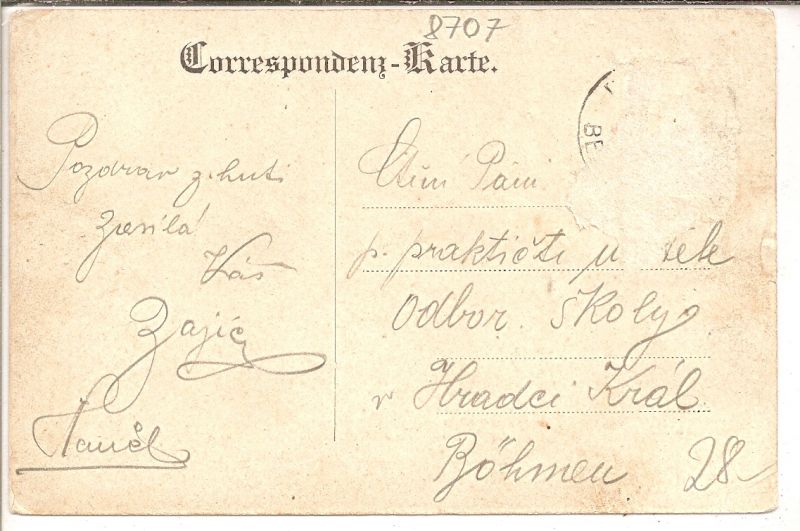 8707
Correspondenz-Karte.
BE
Pozdrav z huti
zasílá
Váš
Zajíc
Ctění Páni
p. praktičti u
Odbor. školy
v Hradci Král
Böhmen 28